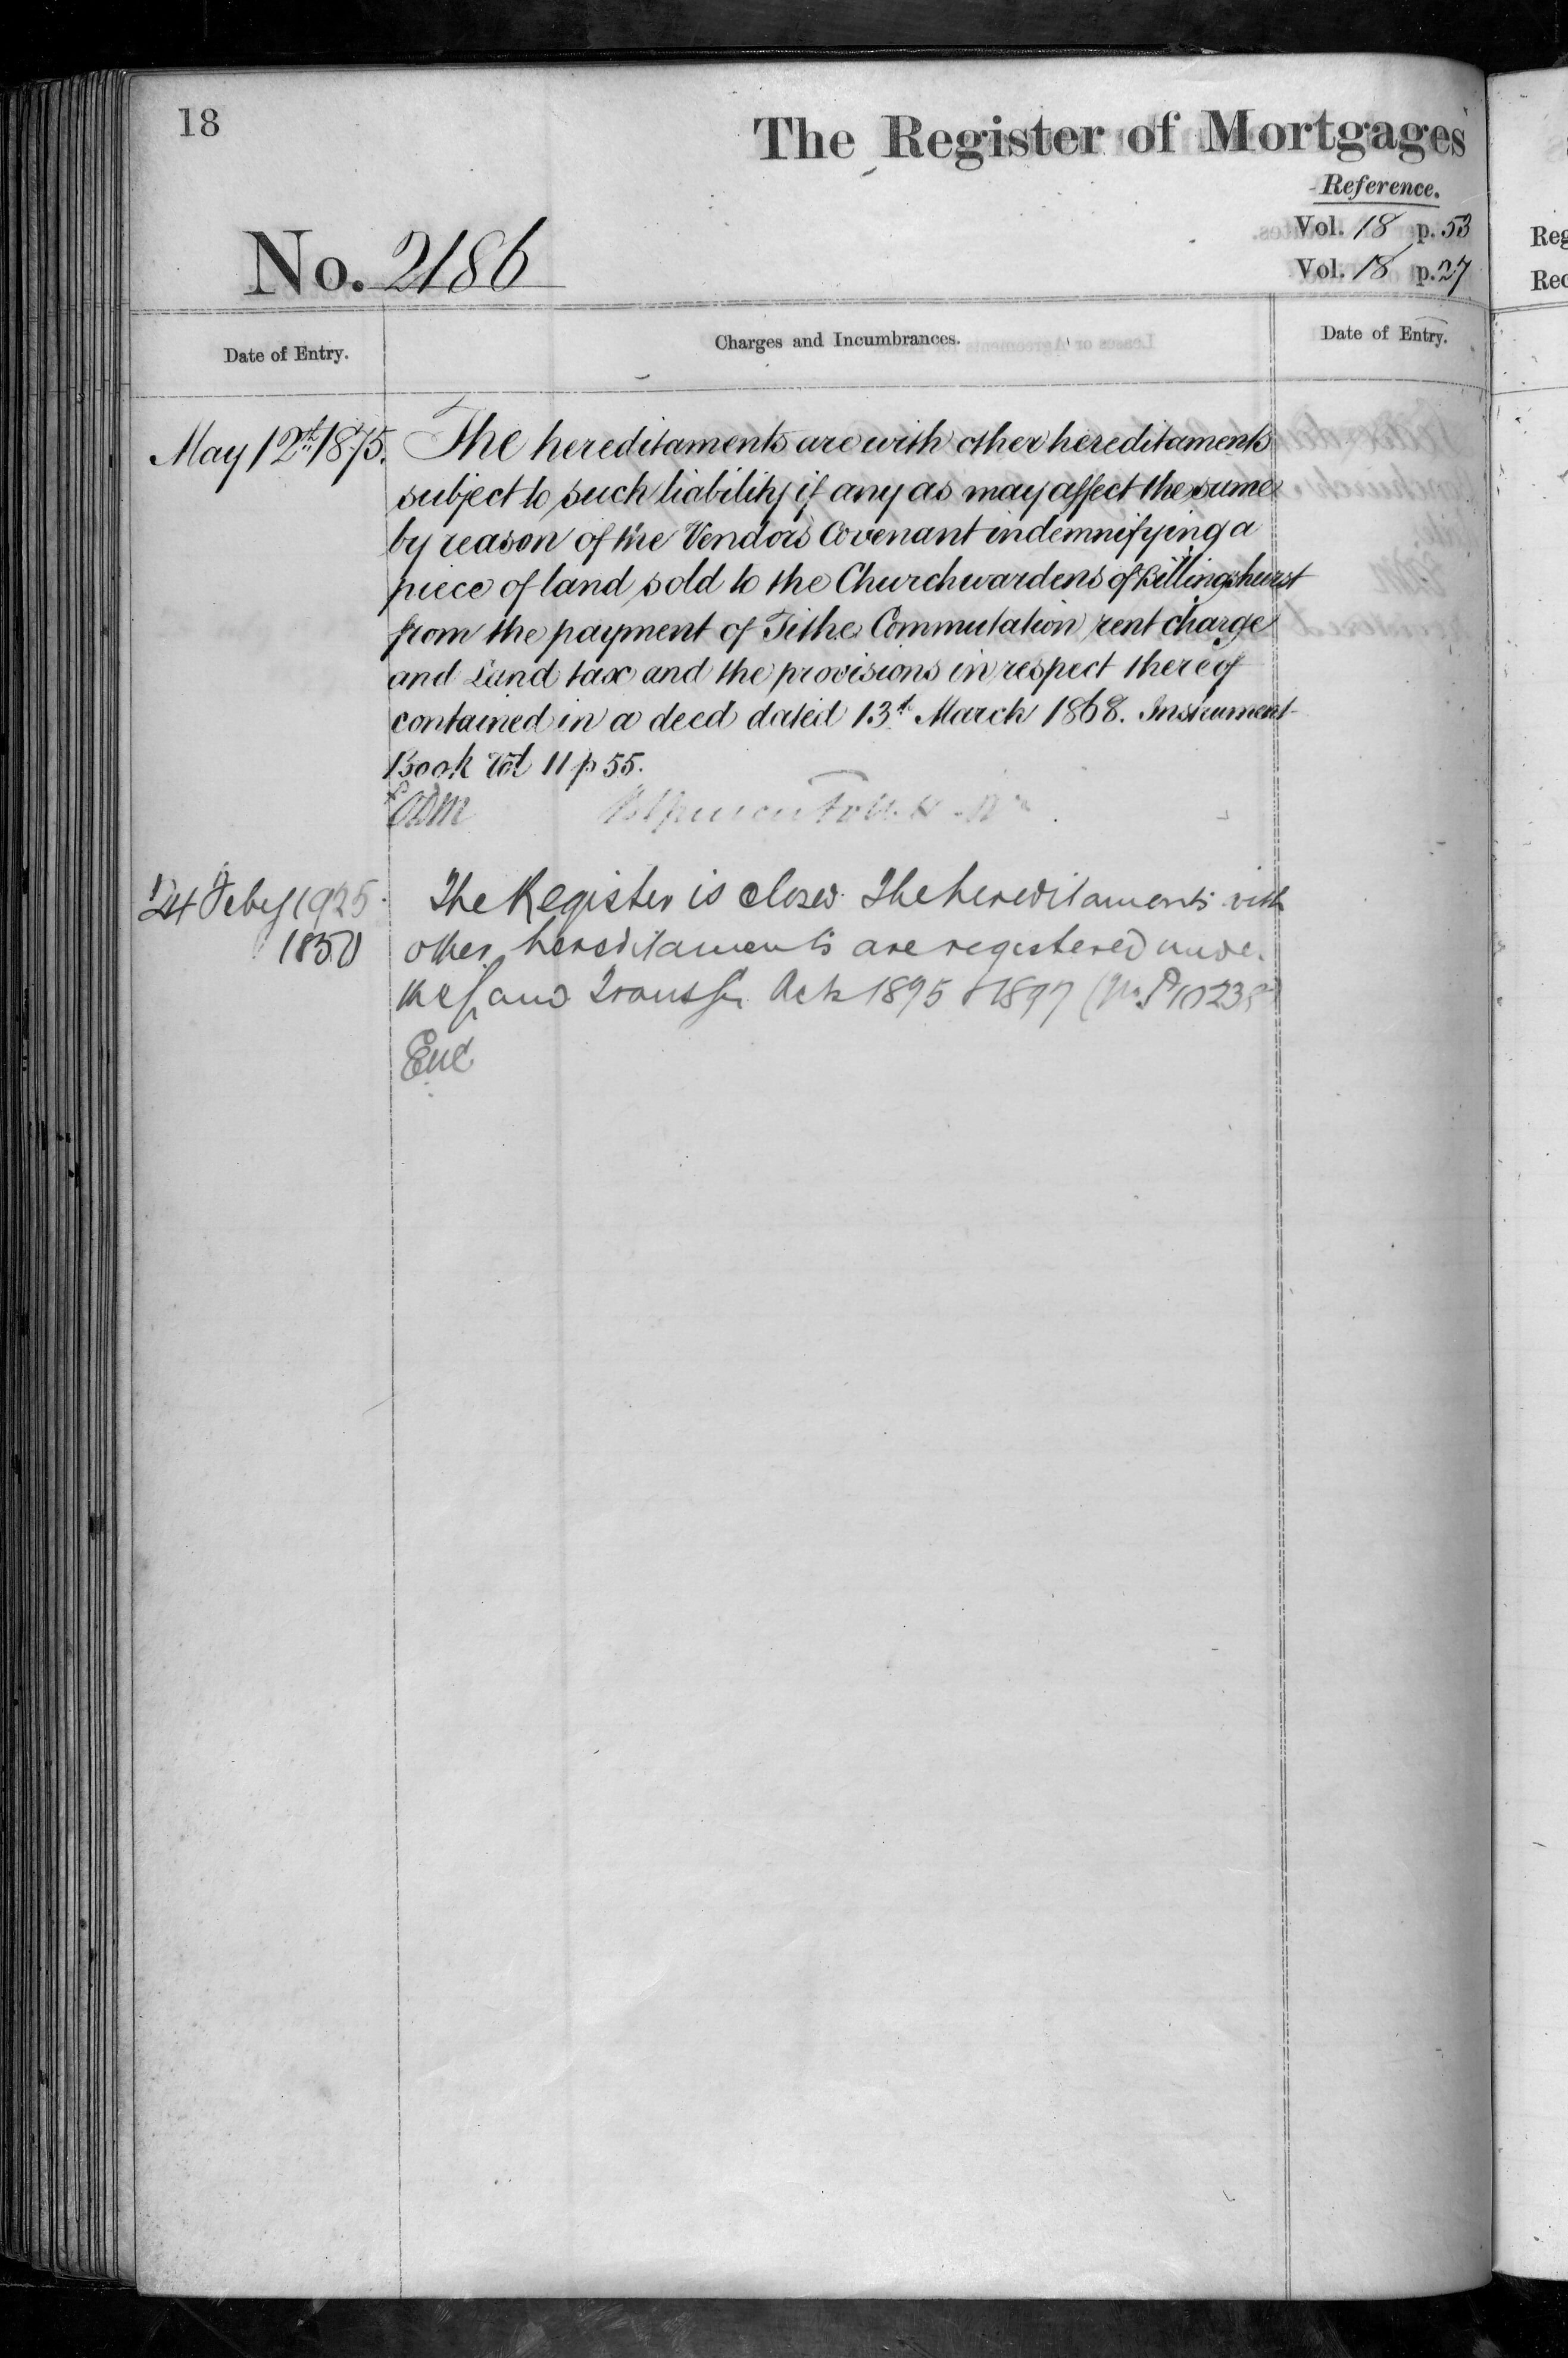 18
The Register of Mortgages
Reference.
Vol. 18 p. 53
No. 2186
Vol. 18 p. 27
Date of Entry.
Charges and Incumbrances.
Date of Entry.
May 12th 1875.
The hereditaments are with other hereditaments
subject to such liability if any as may affect the same
by reason of the Vendors Covenant indemnifying a
piece of land sold to the Churchwardens of Billingshurst
from the payment of Tithe Commutation rent charge
and Land tax and the provisions in respect thereof
contained in a deed dated 13th March 1868. Instrument
Book Vol 11 p 55.
24 Feby 1925
The Register is closed. The hereditaments with
1850
other hereditaments are registered under
the Land Transfer Acts 1895 & 1897
Reg
Rec